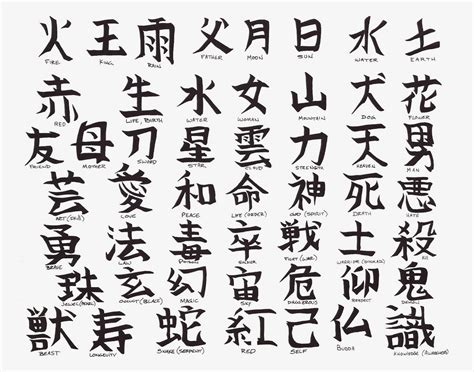 火 王 雨 父 月 日 水 土
FIRE KING RAIN FATHER MOON SUN WATER EARTH
赤 生 水 女 山 犬 花
RED LIFE, BIRTH WATER WOMAN MOUNTAIN DOG FLOWER
友 母 刀 星 雲 力 天 男
FRIEND MOTHER SWORD STAR CLOUD STRENGTH HEAVEN MAN
芸 愛 和 命 神 死 悪
LOVE PEACE LIFE (ORDER) GOD (SPIRIT) DEATH HATE
勇 法 毒 卒 戦 士 殺
LAW POISON FIGHT (WAR) KILL
珠 玄 幻 宙 危 仰 鬼
JEWEL (PEARL) MAGIC SKY DANGEROUS RESPECT DEMON
獣 寿 蛇 紅 己 仏 識
BEAST LONGEVITY SNAKE (SERPENT) RED SELF BUDDA